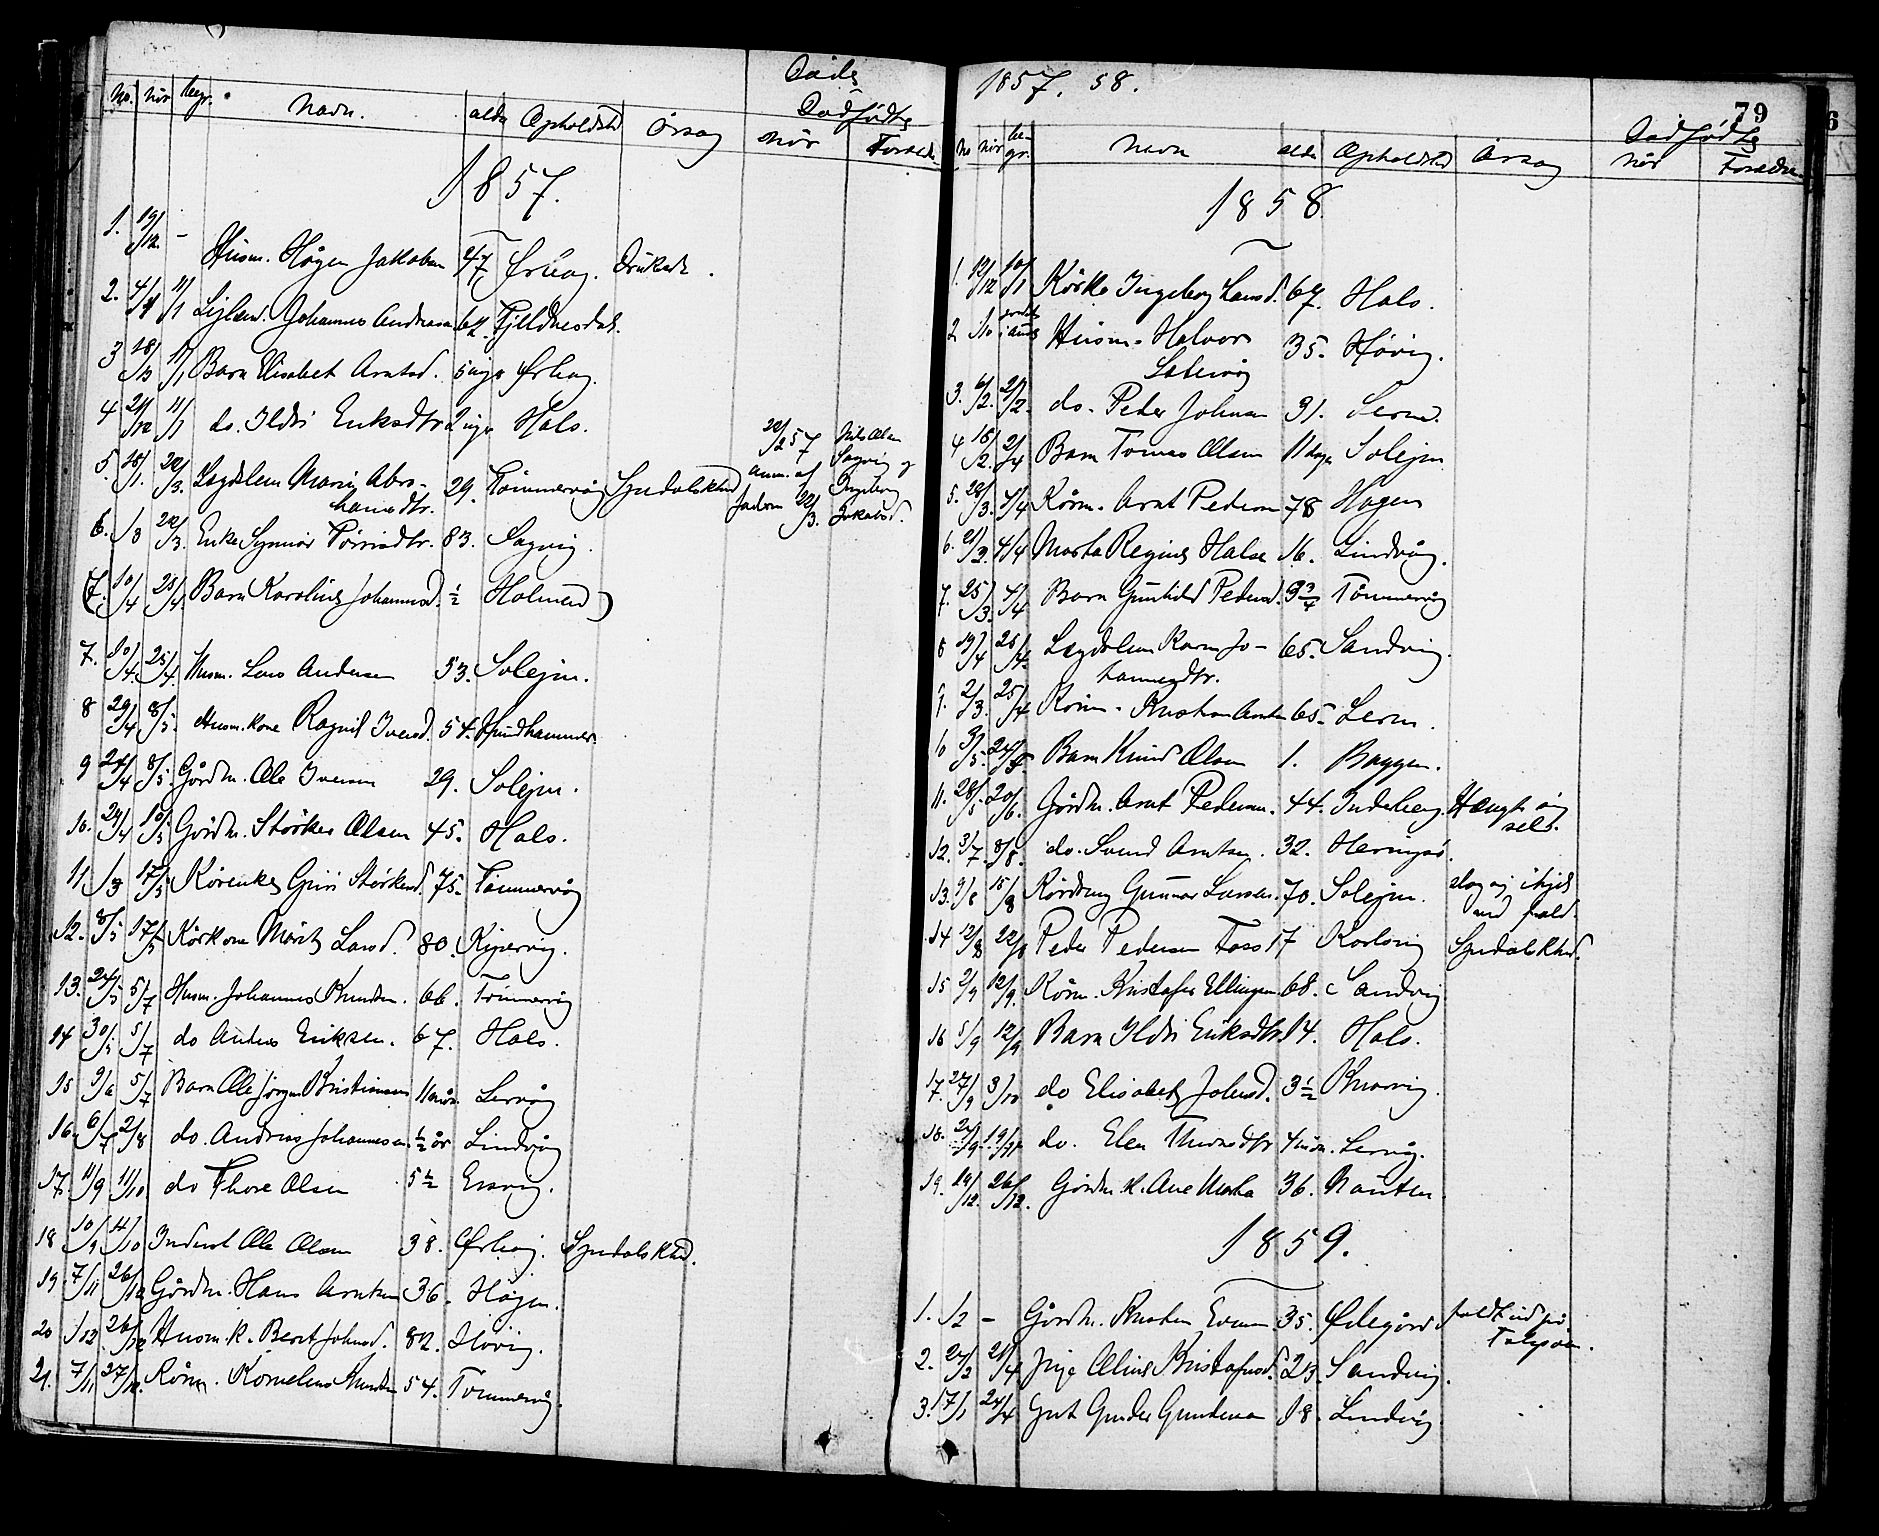 Døde
No. når begr. Navn. alder Opholdsted Årsag Dødfødte
når Foreldre
1857.
1. 19/12 - Husm. Hågen Jakobsen 47 Ørbog. Druknede.
2. 4/1 11/1 Johannes Andreasen 62. Fjelldnesdal.
3 18/12 11/1 Barn Elisabet Arntsd. 5 uger Ørbog.
4 21/12 11/1 do. Ildri Eriksdtr 2 uger Hals.
5. 18/1. 22/3. Lægdslem Marie Abra- 29. Tømmervåg Spedalskhed
hamsdtr.
22/2 57 Nils Olsen
anm. af Sagvig og
faderen 22/3. Ingeborg
Jakobsd.
6. 1/3 22/3. Enke Synnør 83. Sagvig.
(7. 10/4 25/4 Barn Karoline Johannesd. ½ Holmen)
7. 10/4. 25/4. Husm. Lars Andersen 53. Solejm.
8 29/4 8/5. Husm. kone Ragnil Iversd. 54. Hundhammer.
9 24/4 8/5 Gårdm. Ole Iversen 29. Solejm.
10. 29/4 10/5 Gårdm. Størker Olsen 45. Hals.
11 1/3 17/5 Kårenke Guri Størkersd. 75. Tømmervåg
12. 8/5 17/5 Kårkone Marit Larsd. 80. Kjpervig.
13. 24/5 5/7 Husm. Johannes Knudsen. 66. Tømmervåg
14 30/5 5/7 do Anders Eriksen. 67. Hals.
15 9/6 5/7 Barn Ole Jørgen Kristiansen 11 mån. Lervåg
16. 6/7 2/8 do. Andreas Johannesen ½ år Lindvåg
17. 11/9 11/10 do Thore Olsen 5½ Ersvig.
18 10/9 11/10 Inderst Ole Olsen 38. Ørbog. Spedalskhed.
19 7/11 26/12 Gårdm. Hans Arntsen 36. Hågen.
20 1/12 26/12 Husm. k. Berit Johnsd. 82. Høvig.
21. 7/11 27/12. Kårm. Kornelius Knudsen 54. Tømmervåg.
1857. 58.
79
No når be-
gr. Navn alder Opholdsted Årsag Dødfødte
når Foreldre
1858.
1. 12/12 10/1 Kårke Ingeborg Larsd. 67. Hals.
2. 1/10 Husm. Halvor 35. Høvig.
3. 6/2. 21/2. do. Peder Johnsen 31. Lerm.
4 15/2. 2/4 Barn Tomas Olsen 11 dage Solejm
5. 28/3. 4/4 Kårm. Arnt Pedersen 78 Hagen
6. 21/3. 4/4 Marta Regine Halse 16. Lindvåg.
7. 25/3. 4/4 Barn Gunhild Pedersd. 3¾ Tømmervåg
8 19/4 25/4 Lægdslem Karen Jo- 65. Sandvig.
hannesdtr.
9. 2/3. 25/4 Kårm. Kristian Arntsen 65. Lerm.
10 3/5. 24/5. Barn Knud Olsen 1. Baggen.
11. 28/5. 20/6. Gårdm. Arnt Pedersen. 44. Inderberg. Hængte sig
selv.
12. 3/7. 8/8. do. Svend Arntsen. 32. Heringsø.
13. 9/8 15/8 Gunnar Larsen. 70. Solejm. slog sig ihjel
ved fald.
14 12/8 22/8 Peder Pedersen Foss 17 Korsvig Spedalskhed.
15 2/9 12/9. Kårm. Kristofer Ellingsen 68. Sandvig
16 5/9 12/9 Barn Ildri Eriksdtr 14. Hals.
17. 27/9 3/10 do Elisabet Johnsd. 3½ Knarvig.
18. 24/9. do. Elen 4 mån. Lervåg.
19. 19/12. 26/12. Gårdm. k. Ane Marta 36. Nausten.
1859.
1. 1/2 - Gårdm. Kristen Evensen 35. Ødegård faldt ud på
2. 24/2 21/4 Pige Oline Kristofersd. 23. Sandvig.
3. 17/1 24/4 Gut Gunder Gundersen 18. Lindvåg